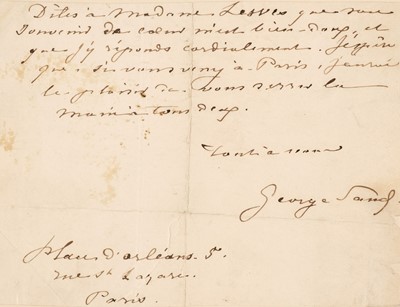 Dites à Madame que son
souvenir de cœur m'est bien doux, et
que j'y réponds cordialement. J'espère
que, si vous venez à Paris, j'aurai
le plaisir de vous serrer la
main à tous deux.
Tout à vous
George Sand
place d'orléans. 5.
rue St Lazare.
Paris.